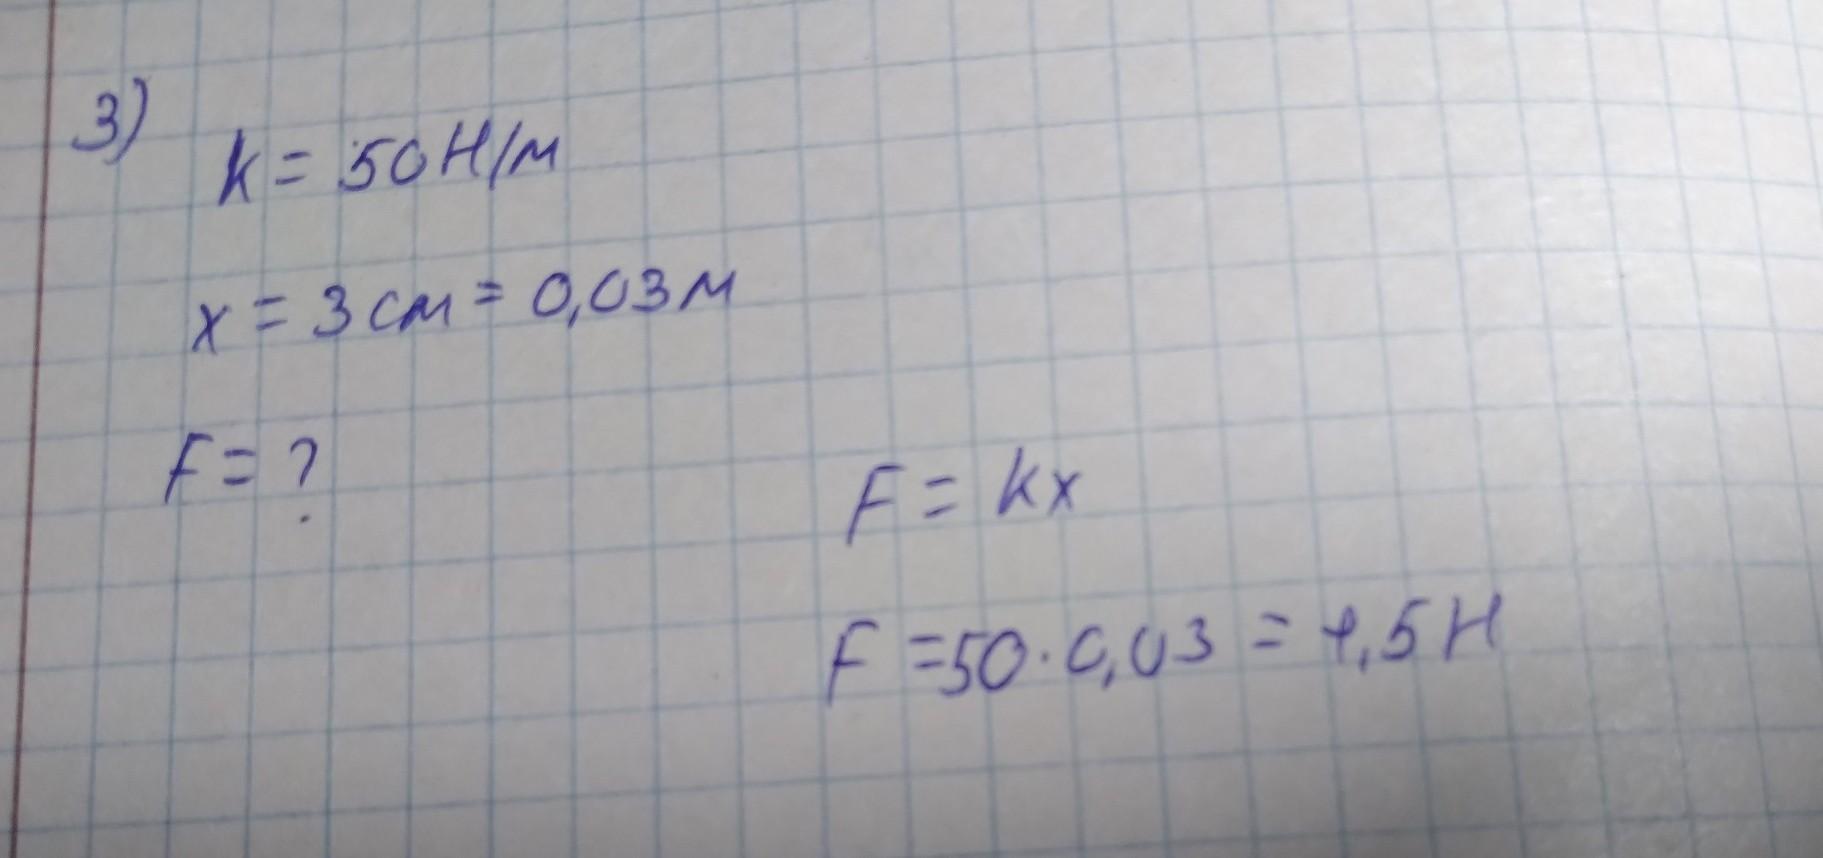 3)
k = 50 Н/м
x = 3 см = 0,03 м
F = ?
F = kx
F = 50 · 0,03 = 1,5 Н